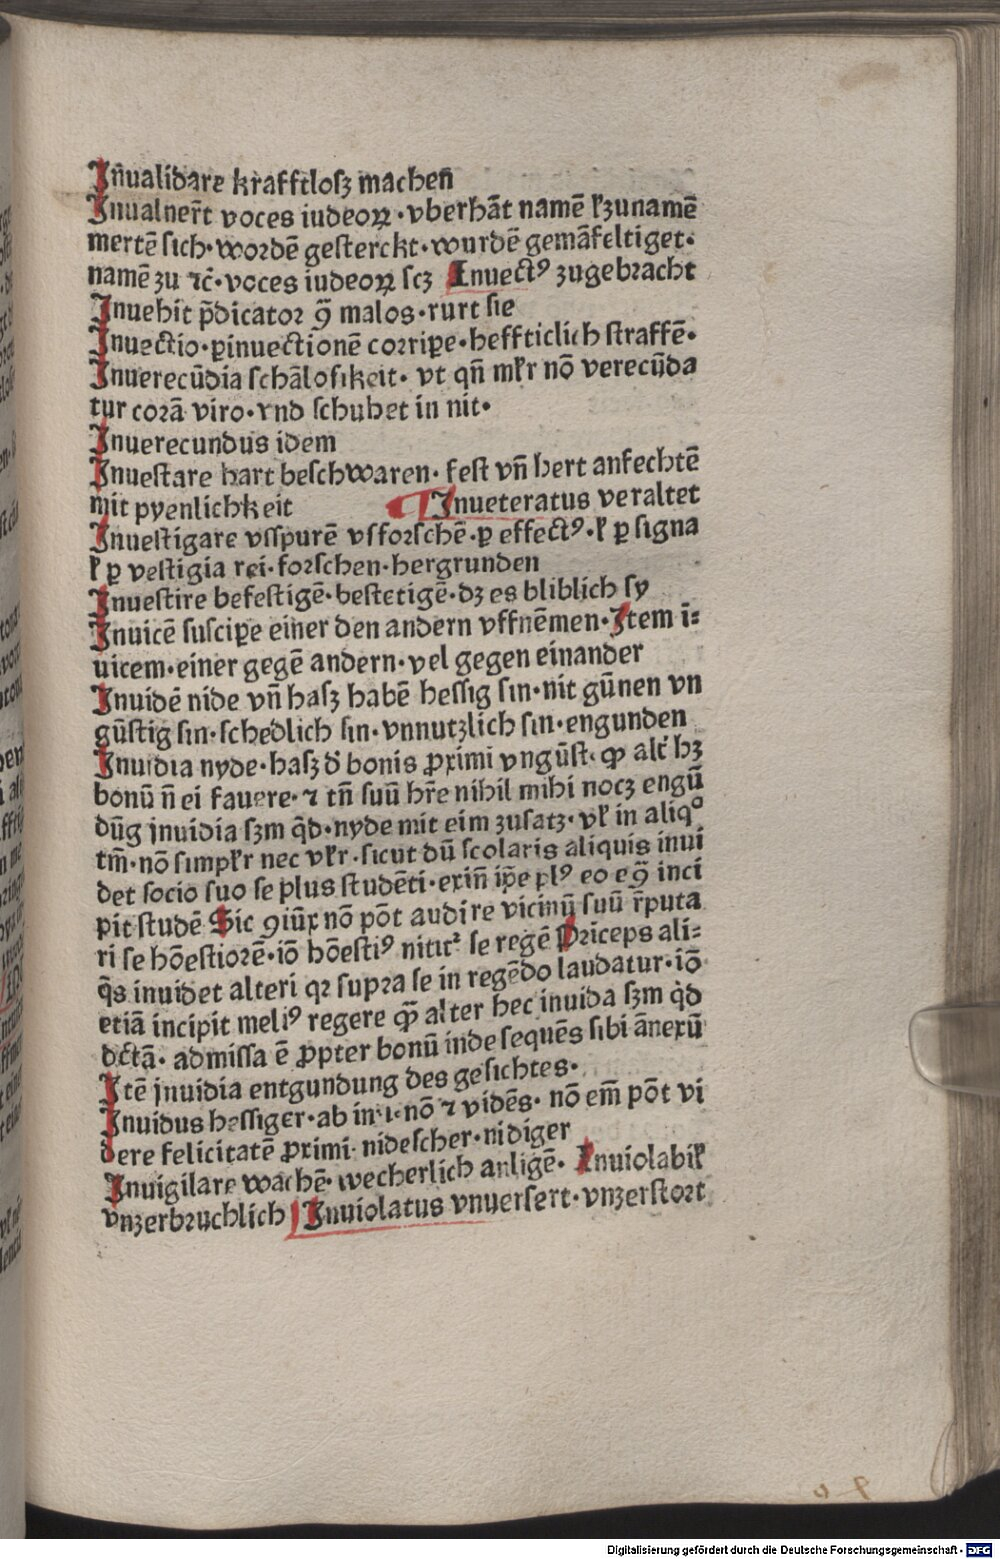 Jn̄ualidare krafftlosz machen̄
Jnualuer̄t voces iudeoꝝ · vberhāt namē ł zunamē
mertē sich · wordē gesterckt · wurdē gemāfeltiget ·
namē zu ⁊c̄ · voces iudeoꝝ scꝫ Jnuectꝰ zugebracht
Jnuehit p̄dicator ꝯ̄ malos · rurt sie
Jnuectio · ꝑ inuectionē corriꝑe · heffticlich straffē ·
Jnuerecūdia schālosikeit · vt qn̄ mlr̄ nō verecūda
tur corā viro · vnd schuhet in nit ·
Jnuerecundus idem
Jnuestare hart beschwaren · fest vn̄ hert anfechtē
mit pyenlichkeit ¶ Jnueteratus veraltet
Jnuestigare vsspurē vsforschē · ꝑ effectꝰ · ł ꝑ signa
ł ꝑ vestigia rei · forschen · hergrunden
Jnuestire befestigē · bestetigē · dꝫ es bliblich sy
Jnuicē susciꝑe einer den andern vffnēmen · Jtem ī⸗
uicem · einer gegē andern · vel gegen einander
Jnuidē nide vn̄ hasz habē hessig sin · nit gūnen vn
gūstig sin · schedlich sin · vnnutzlich sin · engunden
Jnuidia nyde · hasz d̄ bonis ꝓximi vngūst · ꝙ alt̄ hꝫ
bonū n̄ ei fauere · ⁊ tn̄ suū hr̄e nihil mihi nocꝫ engū
dūg jnuidia sꝫm q̄d · nyde mit eim zusatz · vł in aliqº
tm̄ · nō simplr̄ nec vlr̄ · sicut dū scolaris aliquis inui
det socio suo se plus studēti · exin̄ ip̄e plꝰ eo eꝯ̄ inci
pit studē Sic ꝯiūx nō pōt audire vicinū suū r̄puta
ri se hōestiorē · iō hōestiꝰ nitit᷑ se regē Prīceps ali⸗
q̄s inuidet alteri qꝛ supra se in regēdo laudatur · iō
etiā incipit meliꝰ regere ꝙ̄ alter hec inuida sꝫm q̇d
dc̄tā · admissa ē ꝓpter bonū inde sequēs sibi ānexū
Jtē jnuidia entgundung des gesichtes ·
Jnuidus hessiger · ab in · i · nō ⁊ vidēs · nō em̄ pōt vi
dere felicitatē ꝓximi · nidescher · nidiger
Jnuigilare wachē · wecherlich anligē · Jnuiolabił
vnzerbruchlich Jnuiolatus vnuersert · vnzerstort
Digitalisierung gefördert durch die Deutsche Forschungsgemeinschaft - DFG